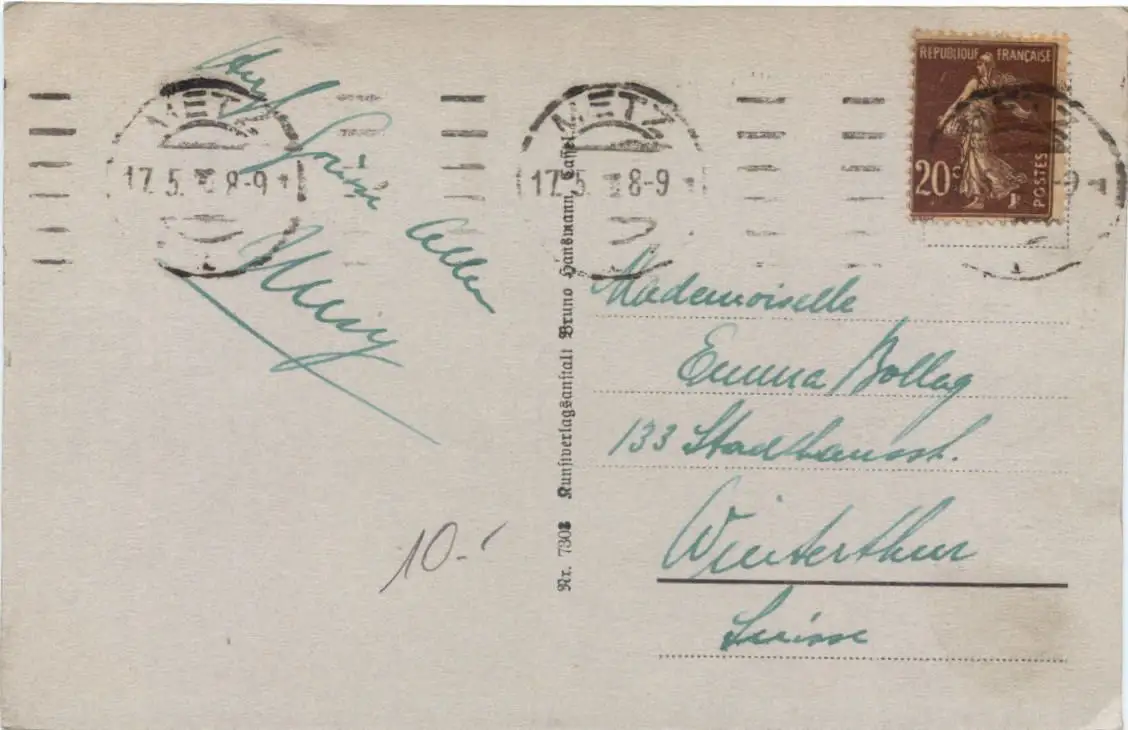 METZ
17. 5. 8-9
METZ
17. 5. 8-9
RÉPUBLIQUE FRANÇAISE
20c
POSTES
-9
Grüsse
Allen
Nr. 7302 Kunstverlagsanstalt Bruno Hansmann, Cassel
Mademoiselle
Emma Bollag
133 Stadthausst.
Winterthur
Suisse
10.-